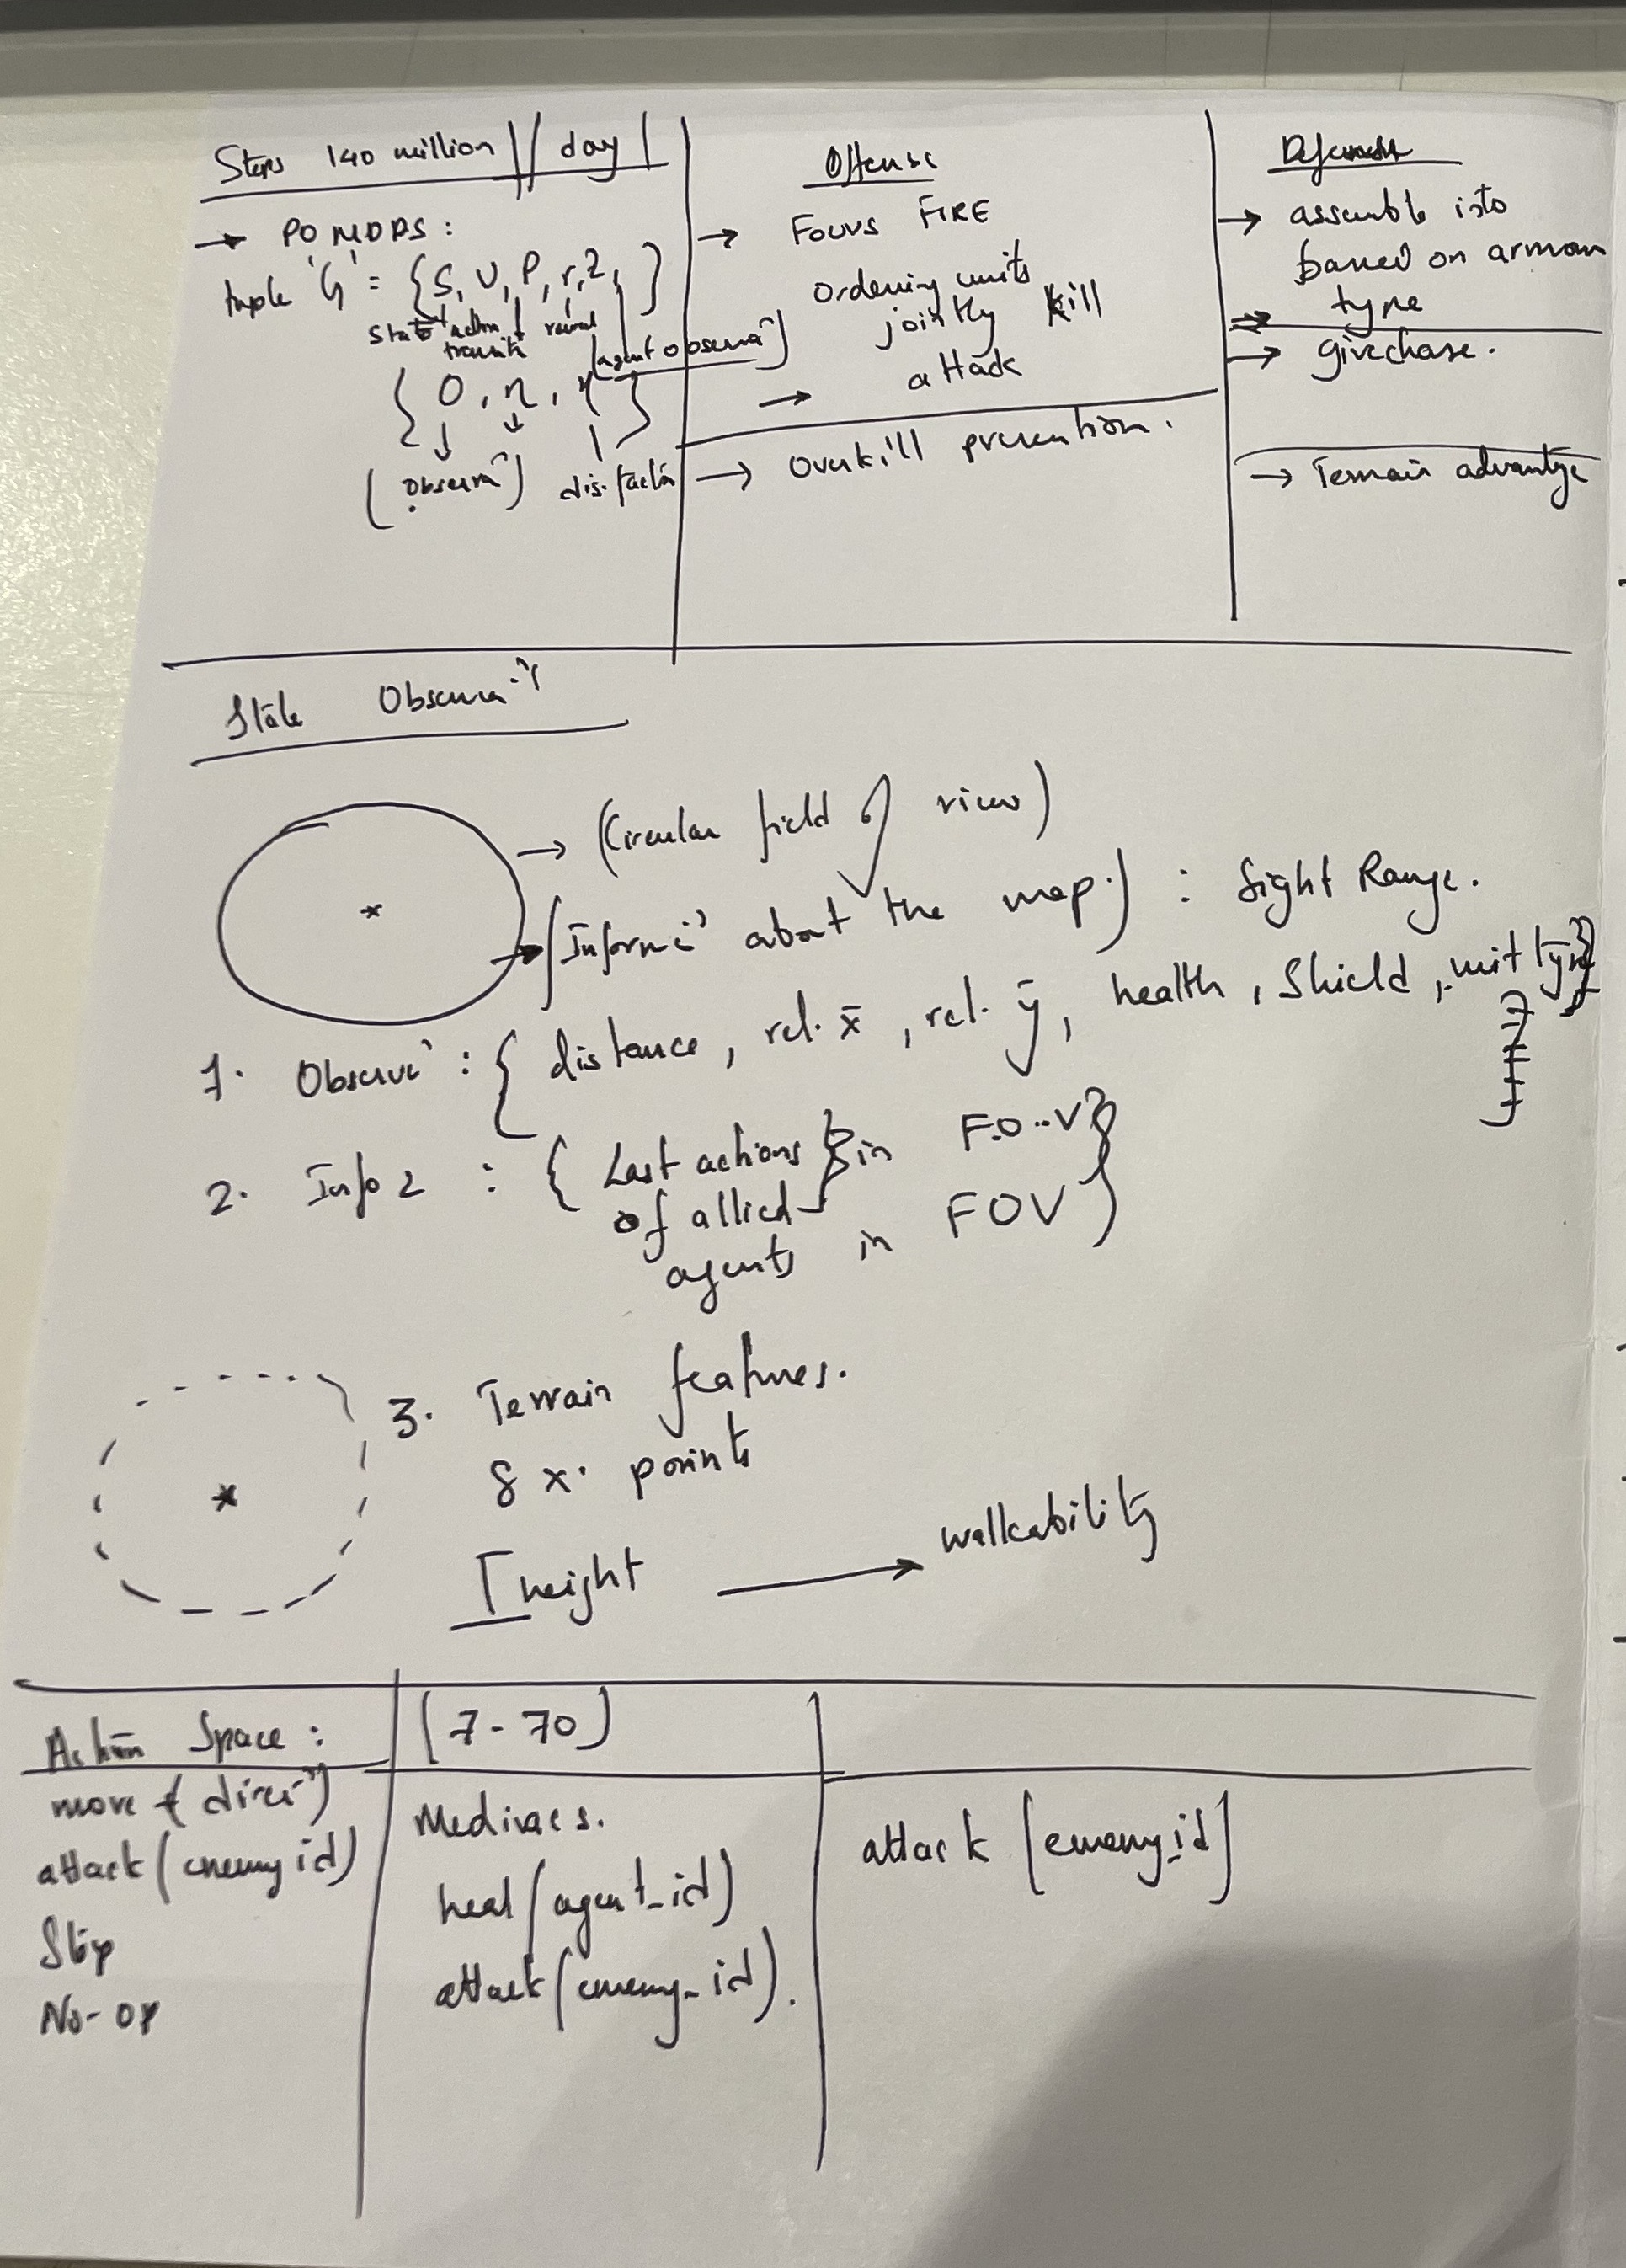 Steps 140 million / day
→ POMDPS:
tuple 'G' = {S, U, P, r, Z,}
state action reward
transiti
(agent observaⁿ)
{O, n, γ}
(observaⁿ) dis. factor
Offense
→ Focus FIRE
ordering units
jointly kill
→ attack
→ Overkill prevention.
→ assemble into
based on armour
type
→ give chase.
→ Terrain advantage
State Observaⁿ
→ (Circular field of view)
→ (Informⁿ about the map.) : Sight Range.
1. Observⁿ : { distance, rel. x̄, rel. ȳ, health, shield, unit type}
2. Info 2 : { Last actions } in F.O.V }
of allied
agents in FOV }
3. Terrain features.
8 x. points
[height → walkability
Action Space : (7-70)
move (direⁿ)
attack (enemy id)
Stop
No-op
Medivacs.
heal (agent_id)
attack (enemy_id).
attack [enemy_id]